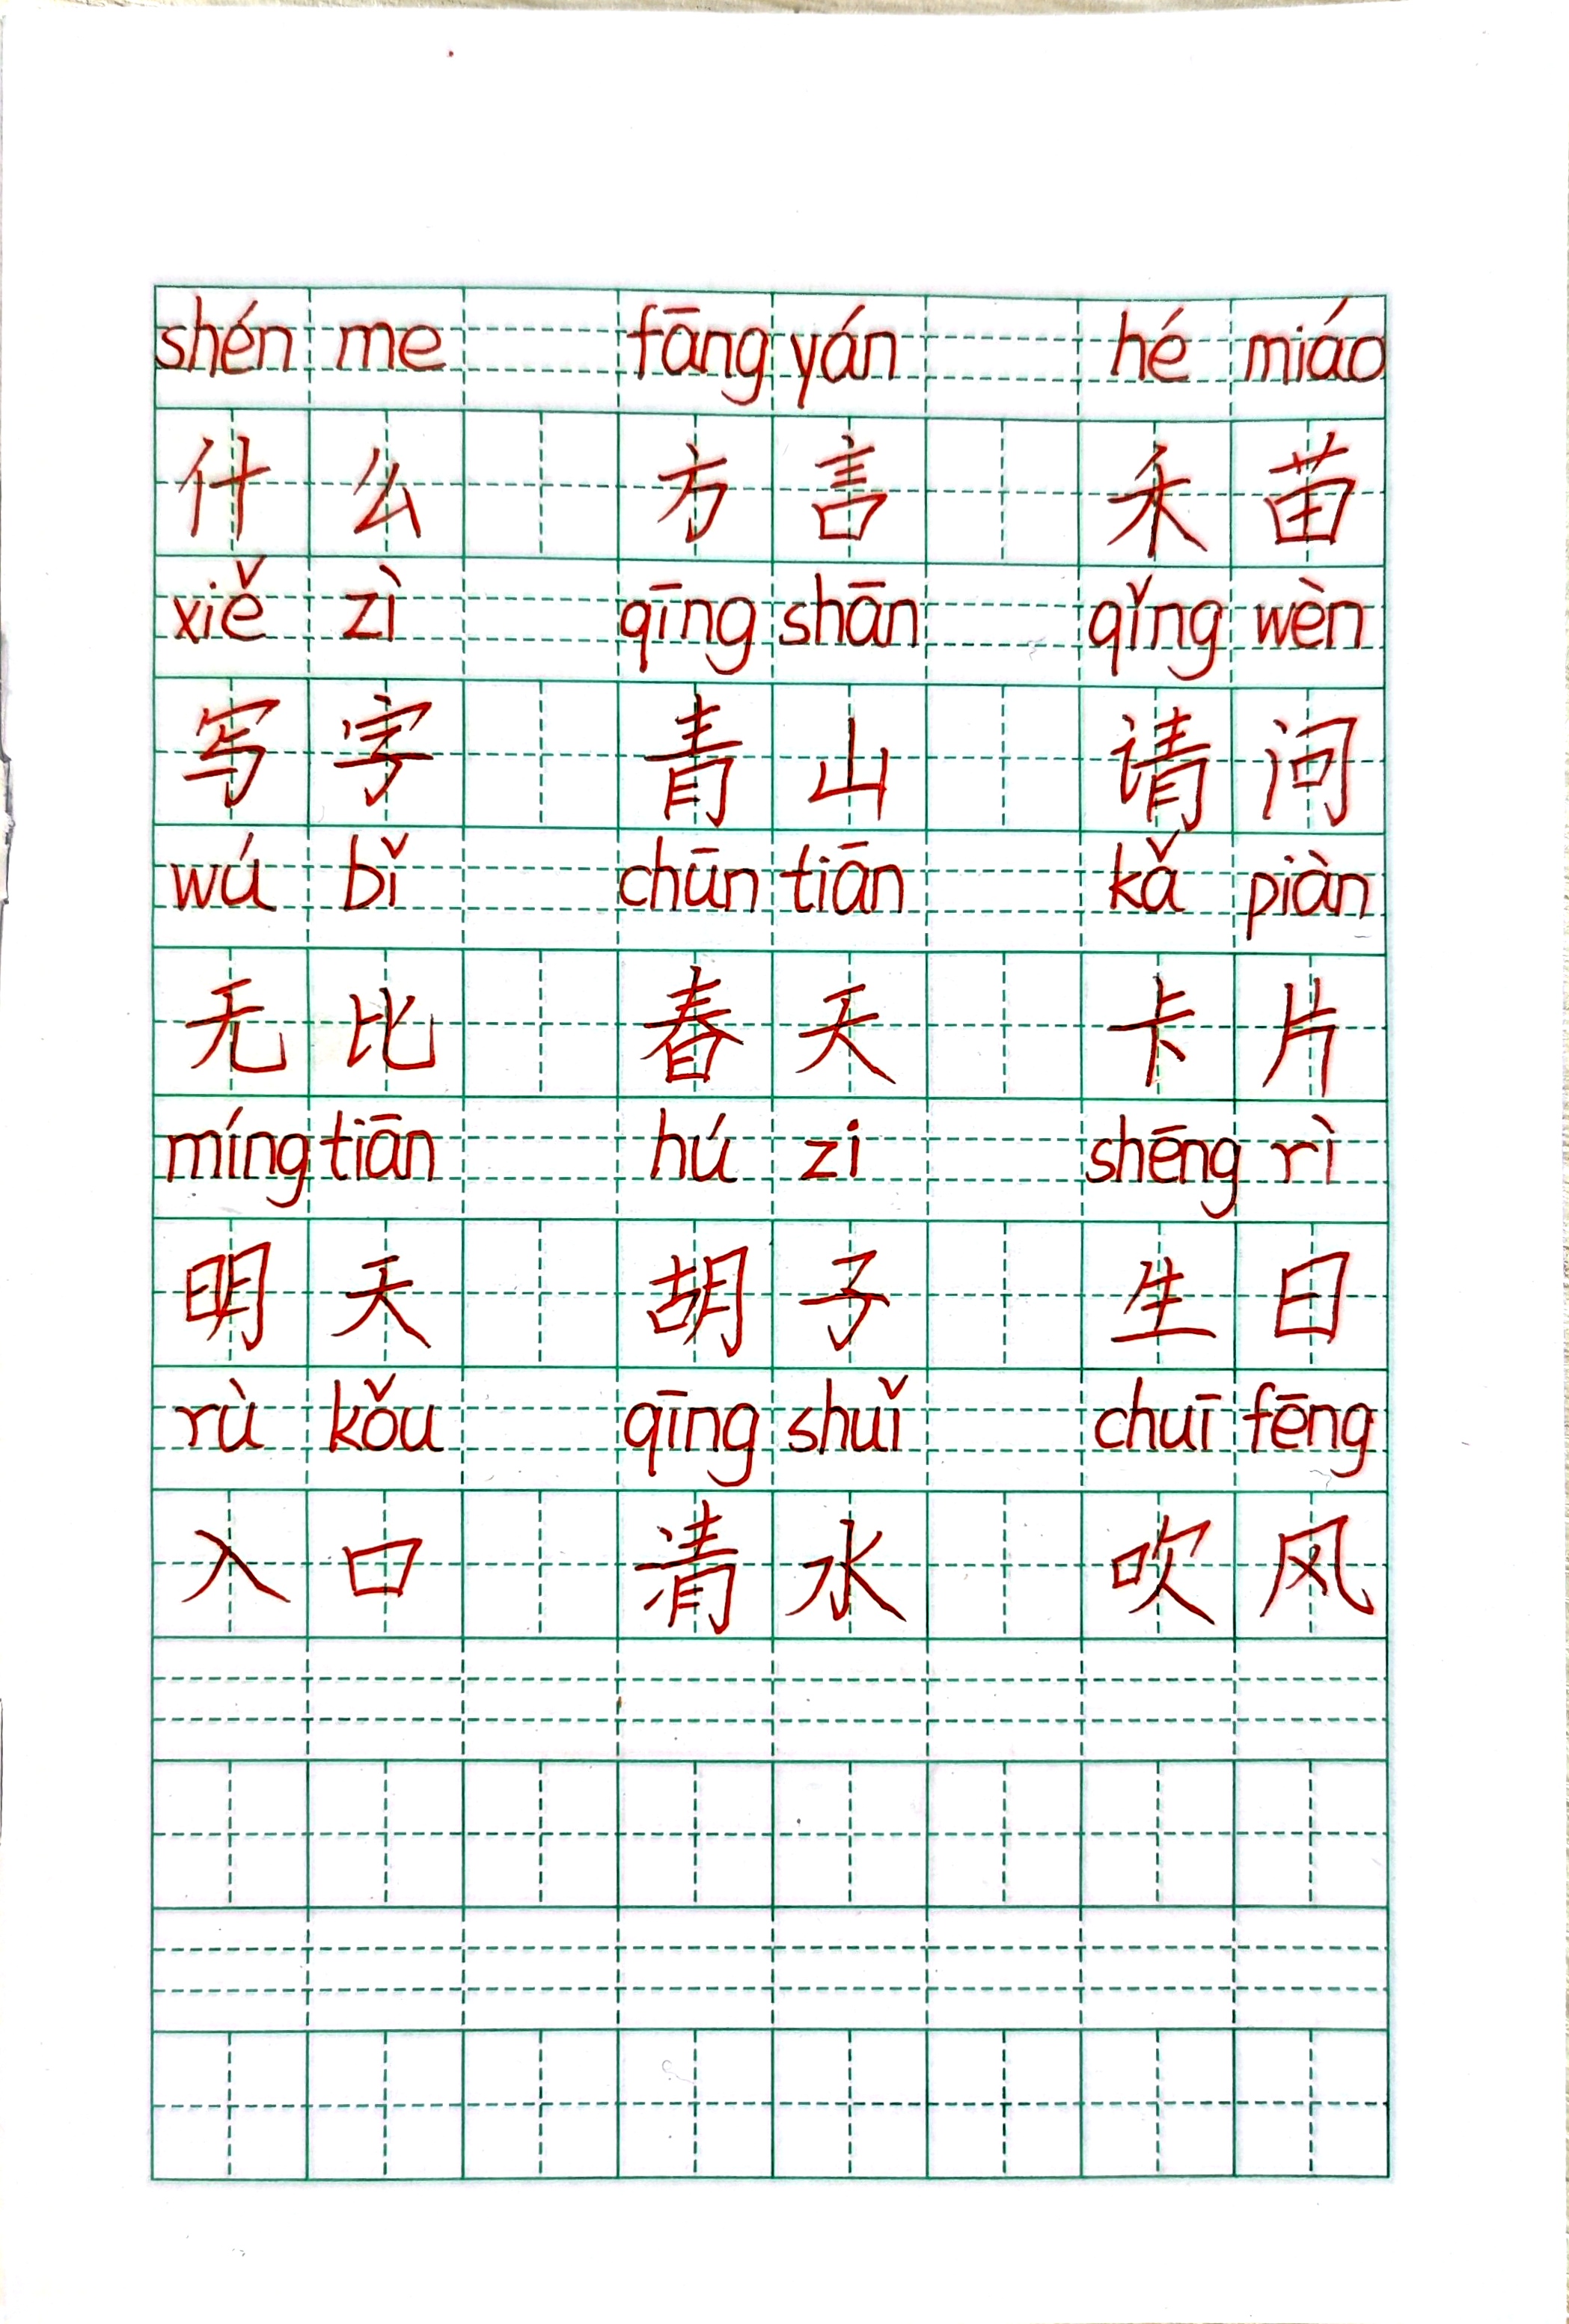 shén me fāng yán hé miáo
什么 方言 禾苗
xiě zì qīng shān qǐng wèn
写字 青山 请问
wú bǐ chūn tiān kǎ piàn
无比 春天 卡片
míng tiān hú zi shēng rì
明天 胡子 生日
rù kǒu qīng shuǐ chuī fēng
入口 清水 吹风